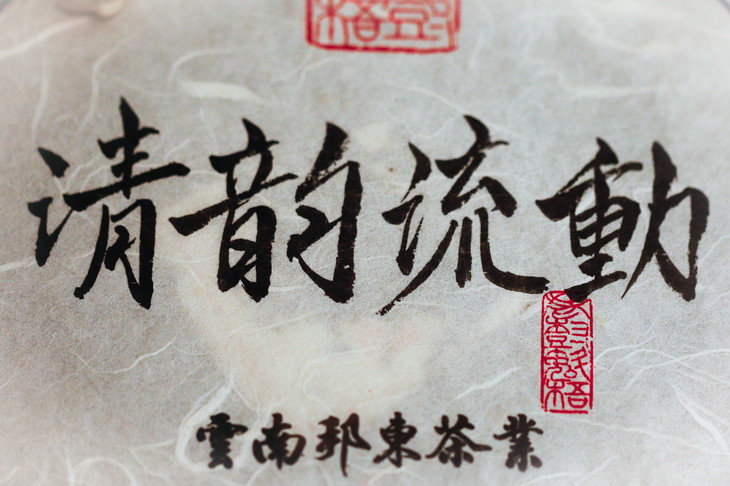 清韵流動
雲南邦東茶業